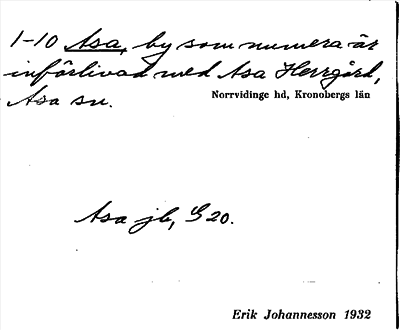 1-10 Asa, by som numera är
införlivad med Asa Herrgård,
Asa sn.
Norrvidinge hd, Kronobergs län
Asa jb, G 20.
Erik Johannesson 1932